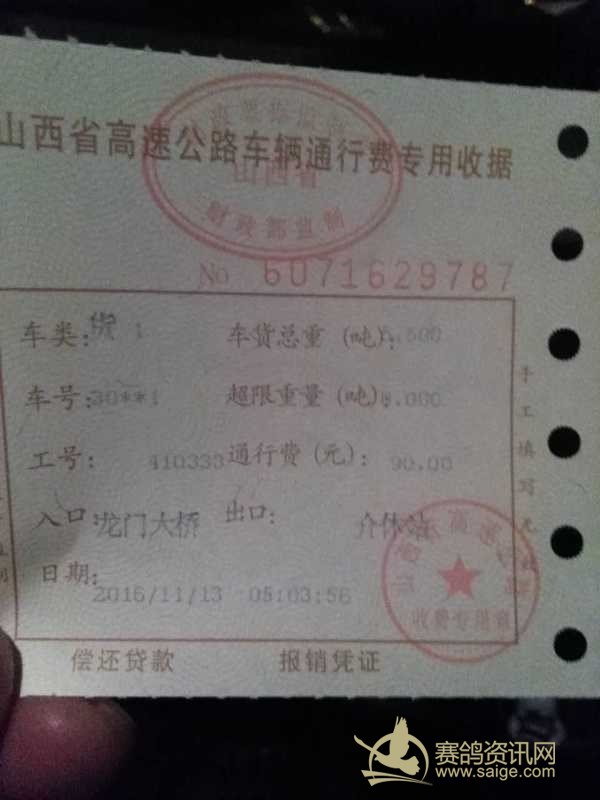 山西省高速公路车辆通行费专用收据
山西省
财政部监制
No 6071629787
车类: 货 1 车货总重 (吨): .500
车号: 30**1 超限重量 (吨): 0.000
工号: 410333 通行费 (元): 90.00
入口: 龙门大桥 出口: 介休站
日期: 2016/11/13 05:03:56
手工填写无
收费专用章
偿还贷款 报销凭证
赛鸽资讯网
www.saige.com